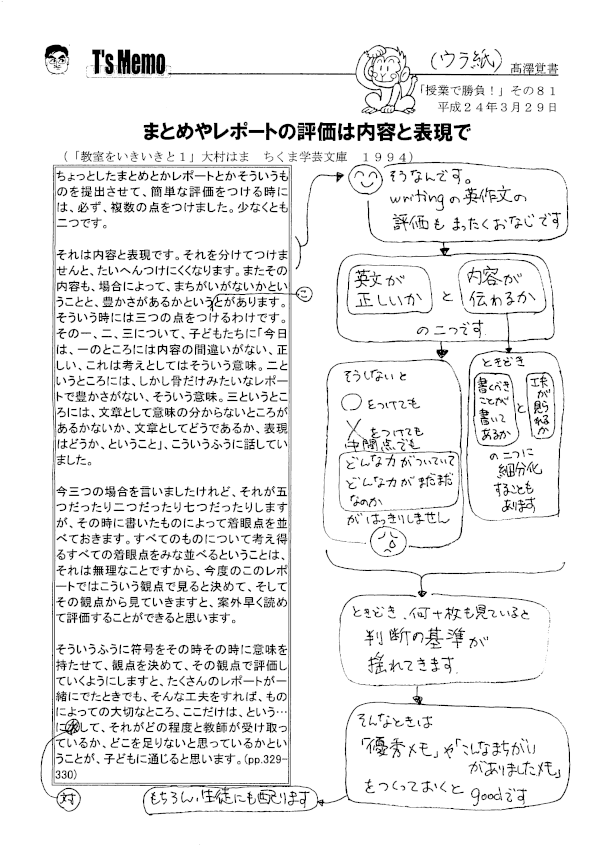 T's Memo
(ウラ紙)
髙澤覚書
「授業で勝負！」その８１
平成２４年３月２９日
まとめやレポートの評価は内容と表現で
（「教室をいきいきと１」大村はま　ちくま学芸文庫　１９９４）
ちょっとしたまとめとかレポートとかそういうも
のを提出させて、簡単な評価をつける時に
は、必ず、複数の点をつけました。少なくとも
二つです。
それは内容と表現です。それを分けてつけま
せんと、たいへんつけにくくなります。またその
内容も、場合によって、まちがいがないかとい
うことと、豊かさがあるかというとがあります。
そういう時には三つの点をつけるわけです。
その一、二、三について、子どもたちに「今日
は、一のところには内容の間違いがない、正
しい、これは考えとしてはそういう意味。二と
いうところには、しかし骨だけみたいなレポー
トで豊かさがない、そういう意味。三というとこ
ろには、文章として意味の分からないところが
あるかないか、文章としてどうであるか、表現
はどうか、ということ」、こういうふうに話してい
ました。
今三つの場合を言いましたけれど、それが五
つだったり二つだったり七つだったりします
が、その時に書いたものによって着眼点を並
べておきます。すべてのものについて考え得
るすべての着眼点をみな並べるということは、
それは無理なことですから、今度のこのレポ
ートではこういう観点で見ると決めて、そして
その観点から見ていきますと、案外早く読め
て評価することができると思います。
そういうふうに符号をその時その時に意味を
持たせて、観点を決めて、その観点で評価し
ていくようにしますと、たくさんのレポートが一
緒にでたときでも、そんな工夫をすれば、もの
によっての大切なところ、ここだけは、という…
にして、それがどの程度と教師が受け取っ
ているか、どこを足りないと思っているかとい
うことが、子どもに通じると思います。(pp.329-
330)
こ
対
そうなんです。
writingの英作文の
評価もまったくおなじです
英文が
正しいか
と
内容が
伝わるか
の二つです.
そうしないと
○をつけても
×をつけても
中間点でも
どんな力がついていて
どんな力がまだまだ
なのか
がはっきりしません
ときどき
書くべき
ことが
書いて
あるか
と
工夫
が
見ら
れるか
の二つに
細分化
することも
あります
ときどき、何十枚も見ていると
判断の基準が
揺れてきます.
そんなときは
「優秀メモ」や「こんなまちがい
がありましたメモ」
をつくっておくと
goodです
もちろん、生徒にも配ります